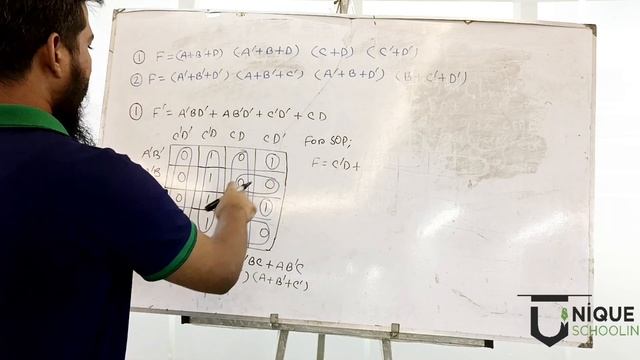 ① F = (A+B+D) (A'+B+D) (C+D) (C'+D')
② F = (A'+B'+D') (A+B'+C') (A'+B+D') (B+C'+D')
① F' = A'BD' + AB'D' + C'D' + CD
C'D' C'D CD CD'
A'B' 0 1 0 1
'B 0 1 0 0
0 1 1
1 0
For SOP;
F = C'D +
'BC + AB'C
) (A+B'+C')
UNIQUE
SCHOOLIN